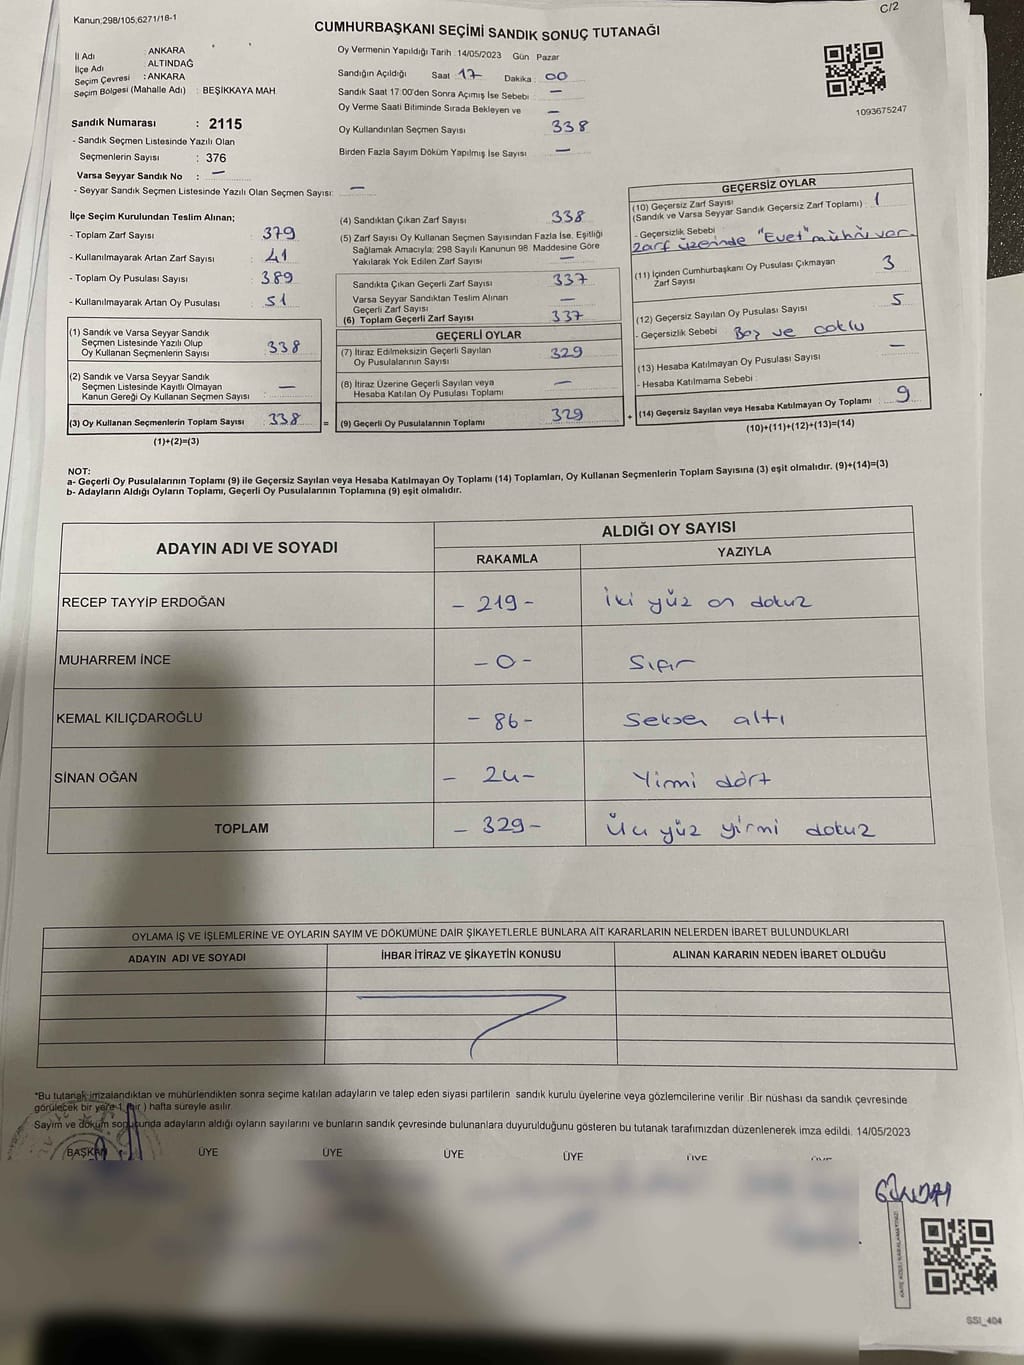 C/2
Kanun;298/105;6271/18-1
CUMHURBAŞKANI SEÇİMİ SANDIK SONUÇ TUTANAĞI
İl Adı : ANKARA
İlçe Adı : ALTINDAĞ
Seçim Çevresi : ANKARA
Seçim Bölgesi (Mahalle Adı) : BEŞİKKAYA MAH.
Sandık Numarası : 2115
- Sandık Seçmen Listesinde Yazılı Olan
Seçmenlerin Sayısı : 376
Varsa Seyyar Sandık No : —
- Seyyar Sandık Seçmen Listesinde Yazılı Olan Seçmen Sayısı: —
Oy Vermenin Yapıldığı Tarih :14/05/2023 Gün Pazar
Sandığın Açıldığı Saat 17 Dakika 00
Sandık Saat 17:00'den Sonra Açımış İse Sebebi —
Oy Verme Saati Bitiminde Sırada Bekleyen ve —
Oy Kullandırılan Seçmen Sayısı 338
Birden Fazla Sayım Döküm Yapılmış İse Sayısı —
1093675247
İlçe Seçim Kurulundan Teslim Alınan;
- Toplam Zarf Sayısı 379
- Kullanılmayarak Artan Zarf Sayısı 41
- Toplam Oy Pusulası Sayısı 389
- Kullanılmayarak Artan Oy Pusulası 51
(1) Sandık ve Varsa Seyyar Sandık
Seçmen Listesinde Yazılı Olup
Oy Kullanan Seçmenlerin Sayısı 338
(2) Sandık ve Varsa Seyyar Sandık
Seçmen Listesinde Kayıtlı Olmayan
Kanun Gereği Oy Kullanan Seçmen Sayısı —
(3) Oy Kullanan Seçmenlerin Toplam Sayısı 338 =
(1)+(2)=(3)
(4) Sandıktan Çıkan Zarf Sayısı 338
(5) Zarf Sayısı Oy Kullanan Seçmen Sayısından Fazla İse, Eşitliği
Sağlamak Amacıyla; 298 Sayılı Kanunun 98. Maddesine Göre
Yakılarak Yok Edilen Zarf Sayısı —
Sandıkta Çıkan Geçerli Zarf Sayısı 337
Varsa Seyyar Sandıktan Teslim Alınan
Geçerli Zarf Sayısı —
(6) Toplam Geçerli Zarf Sayısı 337
GEÇERLİ OYLAR
(7) İtiraz Edilmeksizin Geçerli Sayılan
Oy Pusulalarının Sayısı 329
(8) İtiraz Üzerine Geçerli Sayılan veya
Hesaba Katılan Oy Pusulası Toplamı —
(9) Geçerli Oy Pusulalarının Toplamı 329 +
GEÇERSİZ OYLAR
(10) Geçersiz Zarf Sayısı
(Sandık ve Varsa Seyyar Sandık Geçersiz Zarf Toplamı) 1
- Geçersizlik Sebebi
zarf üzerinde "Evet" mührü var.
(11) İçinden Cumhurbaşkanı Oy Pusulası Çıkmayan
Zarf Sayısı 3
(12) Geçersiz Sayılan Oy Pusulası Sayısı 5
- Geçersizlik Sebebi Boş ve çoklu
(13) Hesaba Katılmayan Oy Pusulası Sayısı —
- Hesaba Katılmama Sebebi
(14) Geçersiz Sayılan veya Hesaba Katılmayan Oy Toplamı 9
(10)+(11)+(12)+(13)=(14)
NOT:
a- Geçerli Oy Pusulalarının Toplamı (9) ile Geçersiz Sayılan veya Hesaba Katılmayan Oy Toplamı (14) Toplamları, Oy Kullanan Seçmenlerin Toplam Sayısına (3) eşit olmalıdır. (9)+(14)=(3)
b- Adayların Aldığı Oyların Toplamı, Geçerli Oy Pusulalarının Toplamına (9) eşit olmalıdır.
ADAYIN ADI VE SOYADI ALDIĞI OY SAYISI
RAKAMLA YAZIYLA
RECEP TAYYİP ERDOĞAN - 219 - İki yüz on dokuz
MUHARREM İNCE - 0 - Sıfır
KEMAL KILIÇDAROĞLU - 86 - Seksen altı
SİNAN OĞAN - 24 - Yirmi dört
TOPLAM - 329 - Üç yüz yirmi dokuz
OYLAMA İŞ VE İŞLEMLERİNE VE OYLARIN SAYIM VE DÖKÜMÜNE DAİR ŞİKAYETLERLE BUNLARA AİT KARARLARIN NELERDEN İBARET BULUNDUKLARI
ADAYIN ADI VE SOYADI İHBAR İTİRAZ VE ŞİKAYETİN KONUSU ALINAN KARARIN NEDEN İBARET OLDUĞU
*Bu tutanak imzalandıktan ve mühürlendikten sonra seçime katılan adayların ve talep eden siyasi partilerin sandık kurulu üyelerine veya gözlemcilerine verilir. Bir nüshası da sandık çevresinde
görülecek bir yere 1 (bir) hafta süreyle asılır.
Sayım ve döküm sonucunda adayların aldığı oyların sayılarını ve bunların sandık çevresinde bulunanlara duyurulduğunu gösteren bu tutanak tarafımızdan düzenlenerek imza edildi. 14/05/2023
BAŞKAN ÜYE ÜYE ÜYE ÜYE ÜYE ÜYE
SSI_404